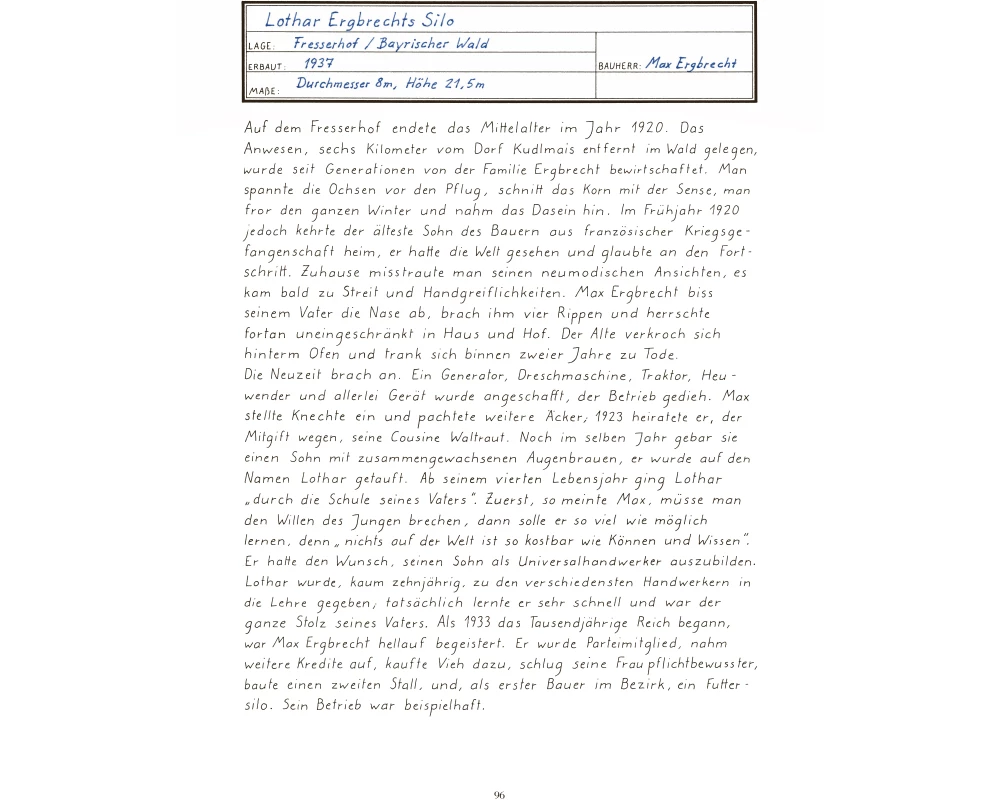 Lothar Ergbrechts Silo
LAGE: Fresserhof / Bayrischer Wald
ERBAUT: 1937
BAUHERR: Max Ergbrecht
MAßE: Durchmesser 8m, Höhe 21,5m
Auf dem Fresserhof endete das Mittelalter im Jahr 1920. Das
Anwesen, sechs Kilometer vom Dorf Kudlmais entfernt im Wald gelegen,
wurde seit Generationen von der Familie Ergbrecht bewirtschaftet. Man
spannte die Ochsen vor den Pflug, schnitt das Korn mit der Sense, man
fror den ganzen Winter und nahm das Dasein hin. Im Frühjahr 1920
jedoch kehrte der älteste Sohn des Bauern aus französischer Kriegsge-
fangenschaft heim, er hatte die Welt gesehen und glaubte an den Fort-
schritt. Zuhause misstraute man seinen neumodischen Ansichten, es
kam bald zu Streit und Handgreiflichkeiten. Max Ergbrecht biss
seinem Vater die Nase ab, brach ihm vier Rippen und herrschte
fortan uneingeschränkt in Haus und Hof. Der Alte verkroch sich
hinterm Ofen und trank sich binnen zweier Jahre zu Tode.
Die Neuzeit brach an. Ein Generator, Dreschmaschine, Traktor, Heu-
wender und allerlei Gerät wurde angeschafft, der Betrieb gedieh. Max
stellte Knechte ein und pachtete weitere Äcker; 1923 heiratete er, der
Mitgift wegen, seine Cousine Waltraut. Noch im selben Jahr gebar sie
einen Sohn mit zusammengewachsenen Augenbrauen, er wurde auf den
Namen Lothar getauft. Ab seinem vierten Lebensjahr ging Lothar
„durch die Schule seines Vaters“. Zuerst, so meinte Max, müsse man
den Willen des Jungen brechen, dann solle er so viel wie möglich
lernen, denn „nichts auf der Welt ist so kostbar wie Können und Wissen“.
Er hatte den Wunsch, seinen Sohn als Universalhandwerker auszubilden.
Lothar wurde, kaum zehnjährig, zu den verschiedensten Handwerkern in
die Lehre gegeben, tatsächlich lernte er sehr schnell und war der
ganze Stolz seines Vaters. Als 1933 das Tausendjährige Reich begann,
war Max Ergbrecht hellauf begeistert. Er wurde Parteimitglied, nahm
weitere Kredite auf, kaufte Vieh dazu, schlug seine Frau pflichtbewusster,
baute einen zweiten Stall, und, als erster Bauer im Bezirk, ein Futter-
silo. Sein Betrieb war beispielhaft.
96